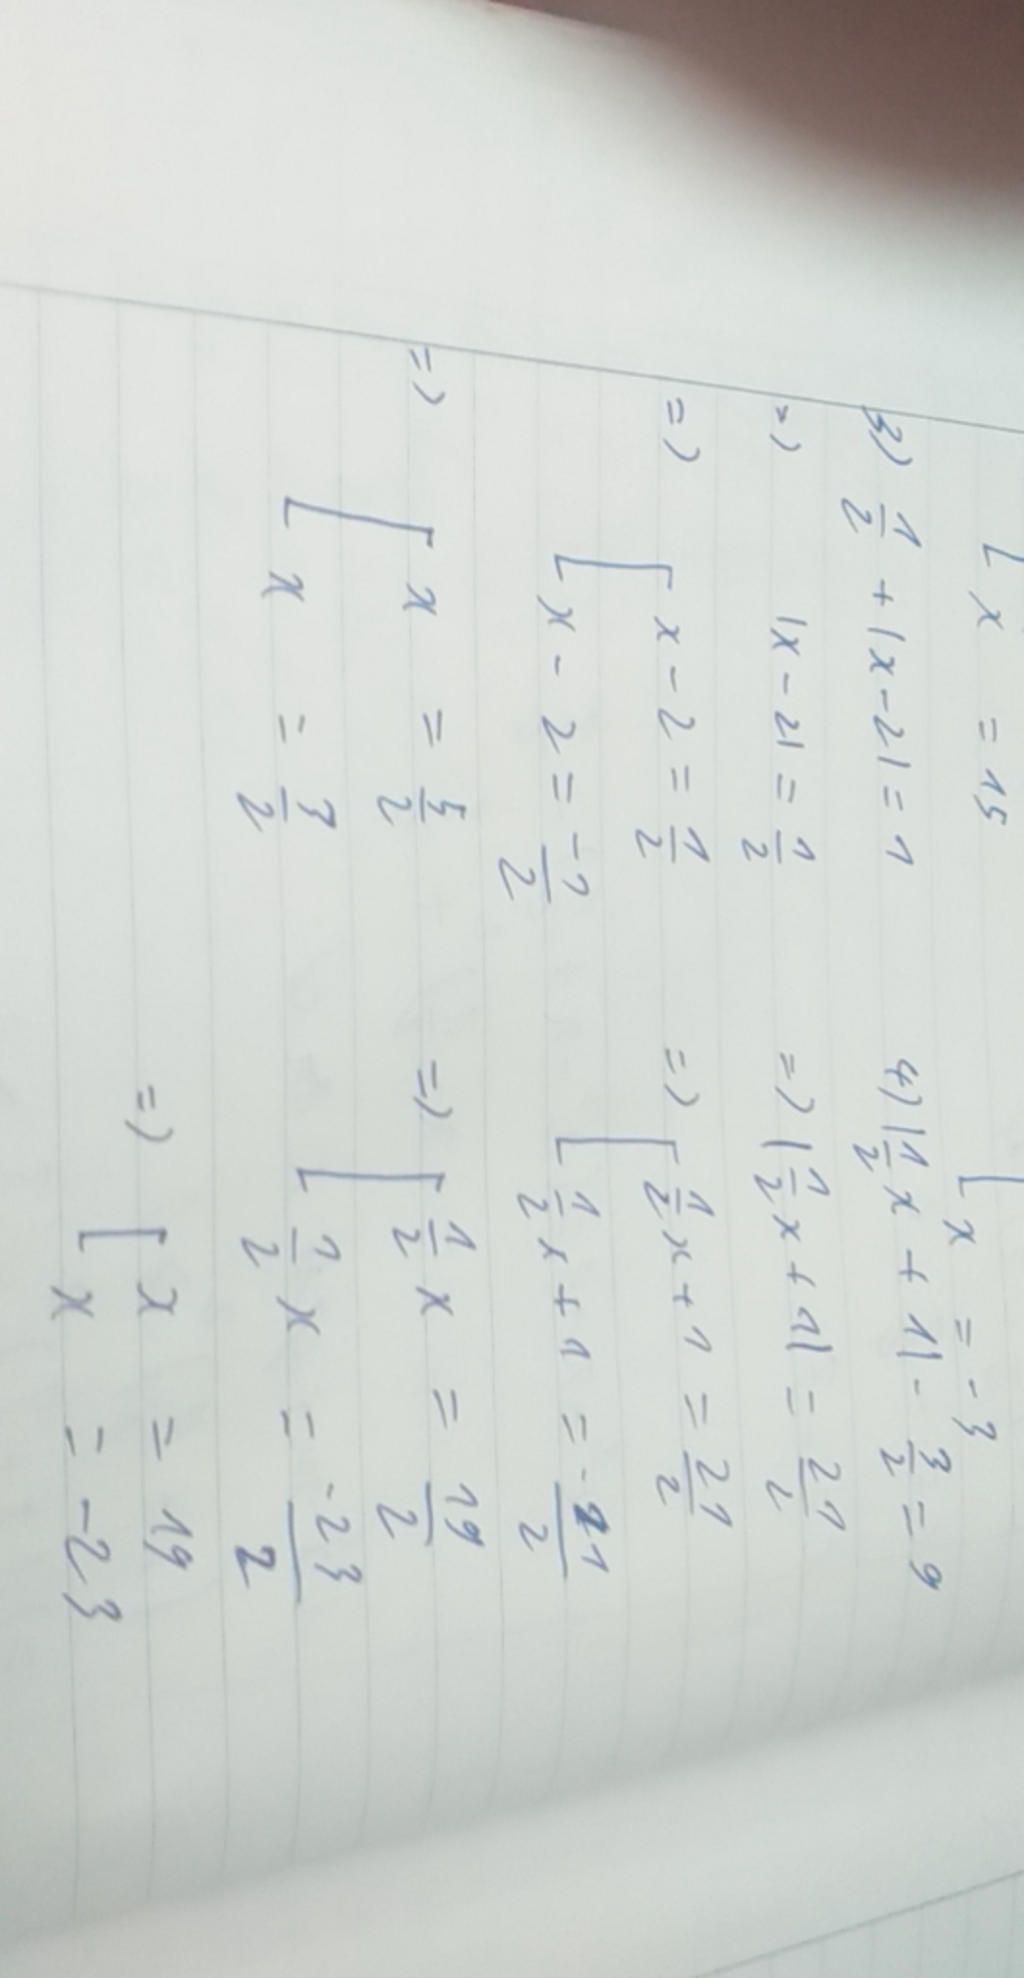 [ x = 15
3) 1/2 + |x - 2| = 1
=) |x - 2| = 1/2
=) [ x - 2 = 1/2
x - 2 = -1/2
=) [ x = 5/2
x = 3/2
[ x = -3
4) |1/2 x + 1| - 3/2 = 9
=) |1/2 x + 1| = 21/2
=) [ 1/2 x + 1 = 21/2
1/2 x + 1 = -21/2
=) [ 1/2 x = 19/2
1/2 x = -23/2
=) [ x = 19
x = -23